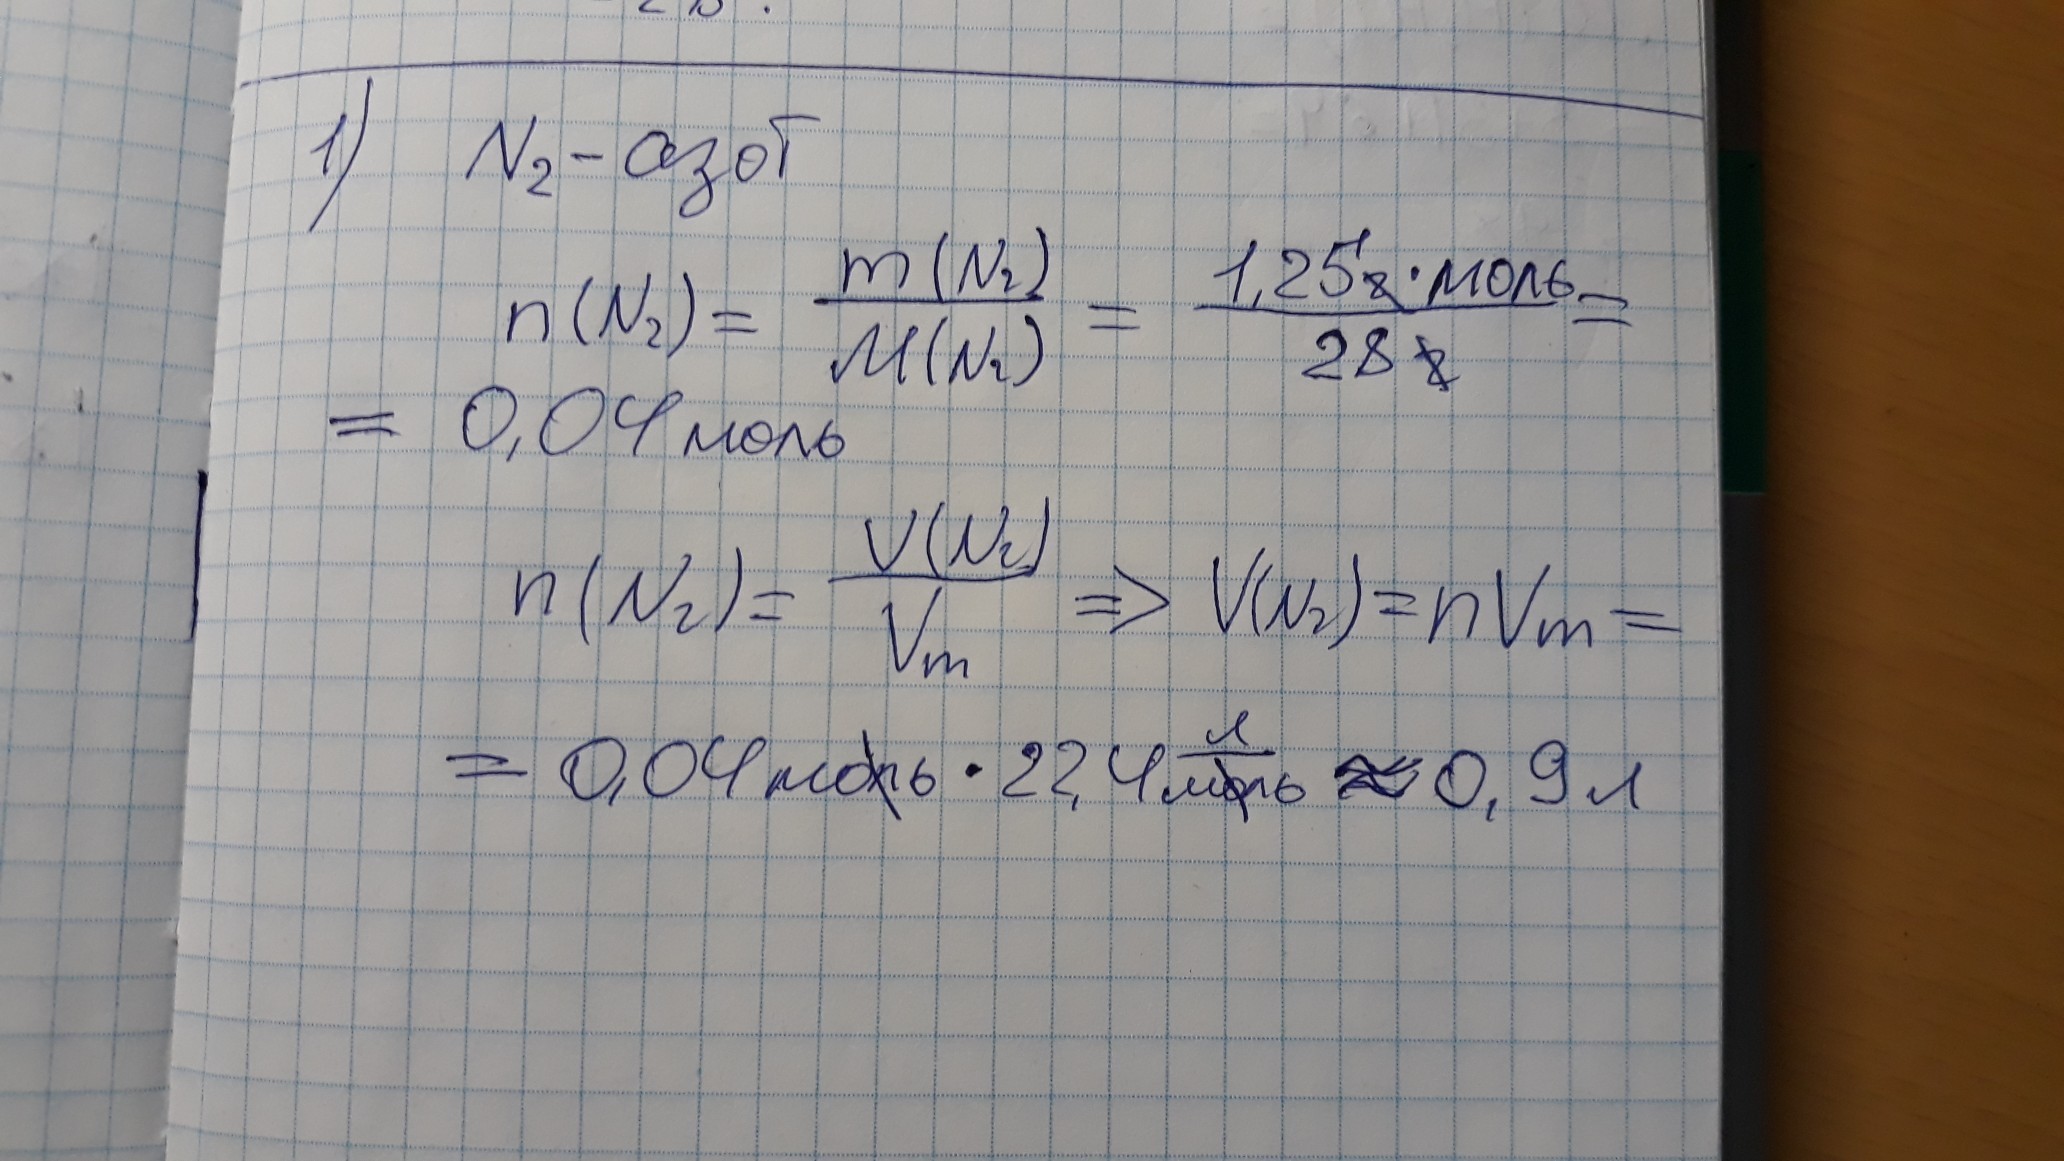 1) N₂ - азот
n(N₂) = m(N₂) / M(N₂) = 1,25г · моль / 28г =
= 0,04 моль
n(N₂) = V(N₂) / Vm => V(N₂) = nVm =
= 0,04 моль · 22,4 л/моль ≈ 0,9 л